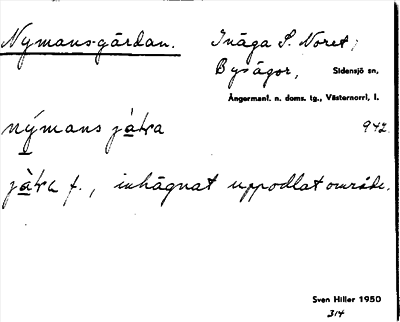 Nymans-gärdan. Inäga S. Noret;
Byságor, Sidensjö sn,
Ångermanl. n. doms. tg., Västernorrl. l.
nýmans 942
f., inhägnat uppodlat område.
Sven Hiller 1950
314